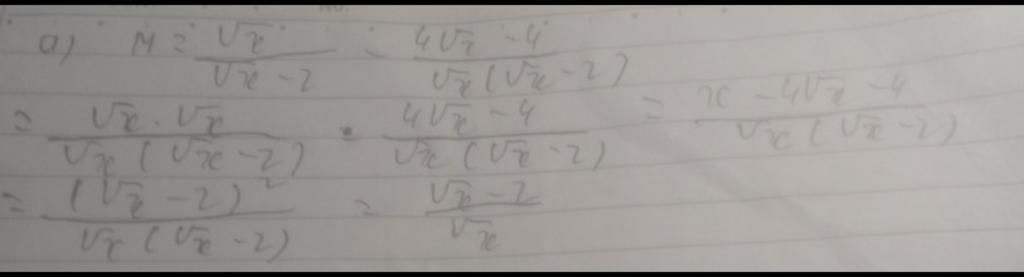 a) M = √x / (√x - 2) - (4√x - 4) / (√x (√x - 2))
= (√x . √x) / (√x (√x - 2)) - (4√x - 4) / (√x (√x - 2)) = (x - 4√x - 4) / (√x (√x - 2))
= (√x - 2)² / (√x (√x - 2)) = (√x - 2) / √x